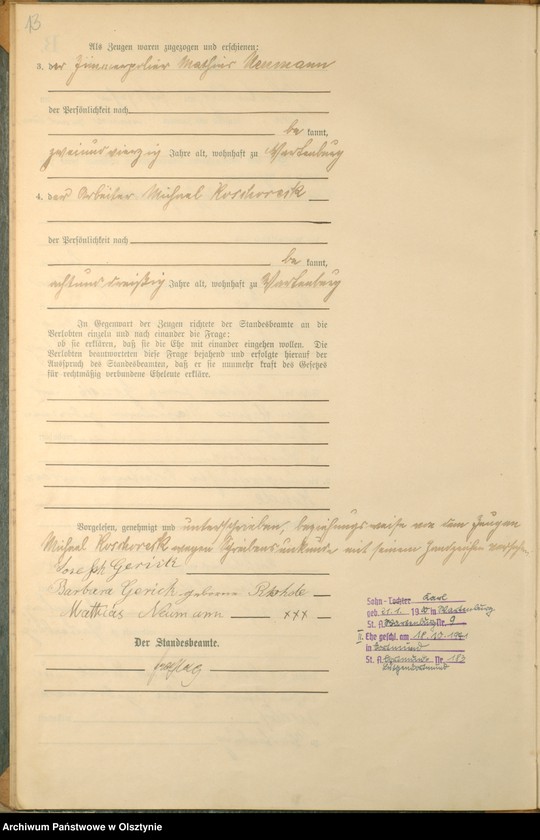 13
Als Zeugen waren zugezogen und erschienen:
3. der Zimmerpolier Mathias Neumann
der Persönlichkeit nach
be kannt,
zweiundvierzig Jahre alt, wohnhaft zu Wartenburg
4. der Arbeiter Michael Koschoreck
der Persönlichkeit nach
be kannt,
achtunddreißig Jahre alt, wohnhaft zu Wartenburg
In Gegenwart der Zeugen richtete der Standesbeamte an die
Verlobten einzeln und nach einander die Frage:
ob sie erklären, daß sie die Ehe mit einander eingehen wollen. Die
Verlobten beantworteten diese Frage bejahend und erfolgte hierauf der
Ausspruch des Standesbeamten, daß er sie nunmehr kraft des Gesetzes
für rechtmäßig verbundene Eheleute erkläre.
Vorgelesen, genehmigt und unterschrieben, beziehungsweise von dem Zeugen
Michael Koschoreck wegen Schreibensunkunde mit seinem Handzeichen versehen.
Josef Gerick
Barbara Gerick geborene Rohde
Matthias Neumann xxx
Der Standesbeamte.
Sohn - Tochter Karl
geb. 19 in Wartenburg
St. A. Wartenburg Nr. 9
II. Ehe geschl. am 18.10.1941
in Dortmund
St. A. Dortmund Nr. 183
Lütgendortmund
Archiwum Państwowe w Olsztynie